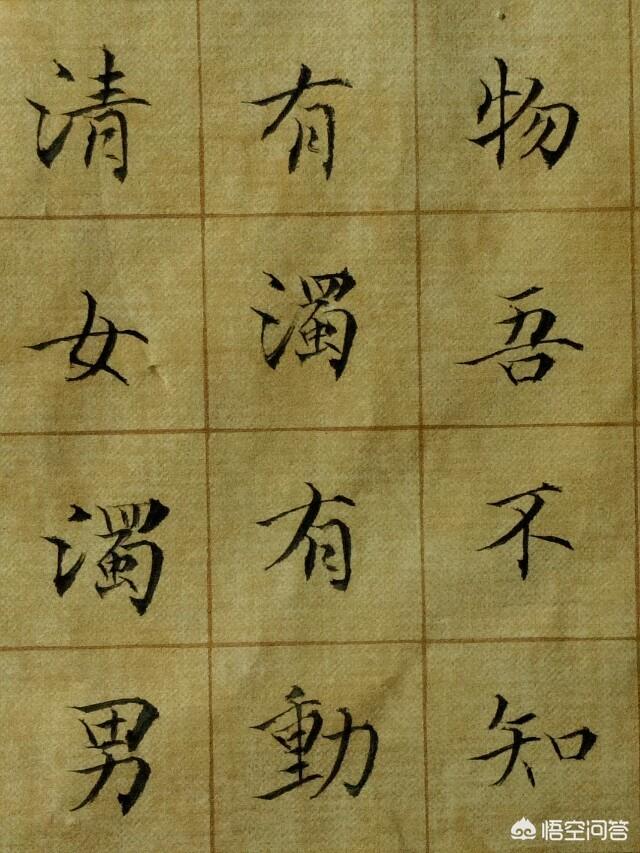 物吾不知
有濁有動
清女濁男
悟空问答